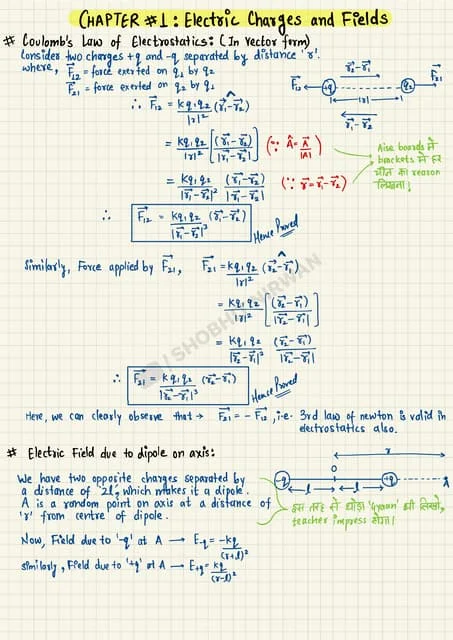 CHAPTER #1: Electric Charges and Fields
# Coulomb's Law of Electrostatics: (In vector form)
Consider two charges +q and -q separated by distance 'r'.
where, F⃗₁₂ = force exerted on q₁ by q₂
F⃗₂₁ = force exerted on q₂ by q₁
r⃗₂-r⃗₁
F⃗₁₂ +q |r| q₂ F⃗₂₁
r⃗₁-r⃗₂
∴ F⃗₁₂ = kq₁q₂/|r|² (r⃗₁-r⃗₂)^
= kq₁q₂/|r|² [(r⃗₁-r⃗₂)/|r⃗₁-r⃗₂|] (∵ Â = A⃗/|A|)
= kq₁q₂/|r⃗₁-r⃗₂|² (r⃗₁-r⃗₂)/|r⃗₁-r⃗₂| (∵ r⃗ = r⃗₁-r⃗₂)
Aise boards में
brackets में हर
चीज का reason
लिखना!
∴ F⃗₁₂ = kq₁q₂/|r⃗₁-r⃗₂|³ (r⃗₁-r⃗₂)
Hence Proved
Similarly, Force applied by F⃗₂₁, F⃗₂₁ = kq₁q₂/|r|² (r⃗₂-r⃗₁)^
= kq₁q₂/|r|² [(r⃗₂-r⃗₁)/|r⃗₂-r⃗₁|]
= kq₁q₂/|r⃗₂-r⃗₁|² (r⃗₂-r⃗₁)/|r⃗₂-r⃗₁|
∴ F⃗₂₁ = kq₁q₂/|r⃗₂-r⃗₁|³ (r⃗₂-r⃗₁)
Hence Proved
/SHOBHIT NIRWAN
Here, we can clearly observe that → F⃗₂₁ = -F⃗₁₂, i.e. 3rd law of newton is valid in
electrostatics also.
# Electric Field due to dipole on axis:
r
O
-q l l +q A
We have two opposite charges separated by
a distance of '2l', which makes it a dipole.
A is a random point on axis at a distance of
'r' from centre of dipole.
इस तरह से थोड़ा 'Gyaan' भी लिखो,
teacher impress होगा!
Now, Field due to '-q' at A → E-q = -kq/(r+l)²
similarly, Field due to '+q' at A → E+q = kq/(r-l)²